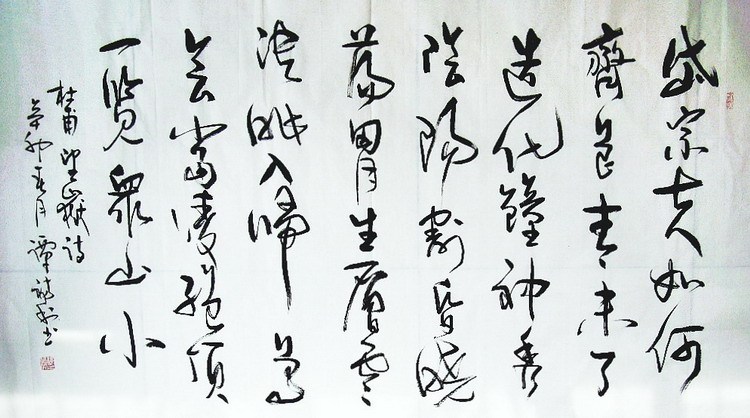 岱宗夫如何
齊魯青未了
造化鐘神秀
陰陽割昏曉
蕩胷生層雲
決眥入歸鳥
會當凌絕頂
一覽眾山小
杜甫望嶽詩
辛卯春月譚書